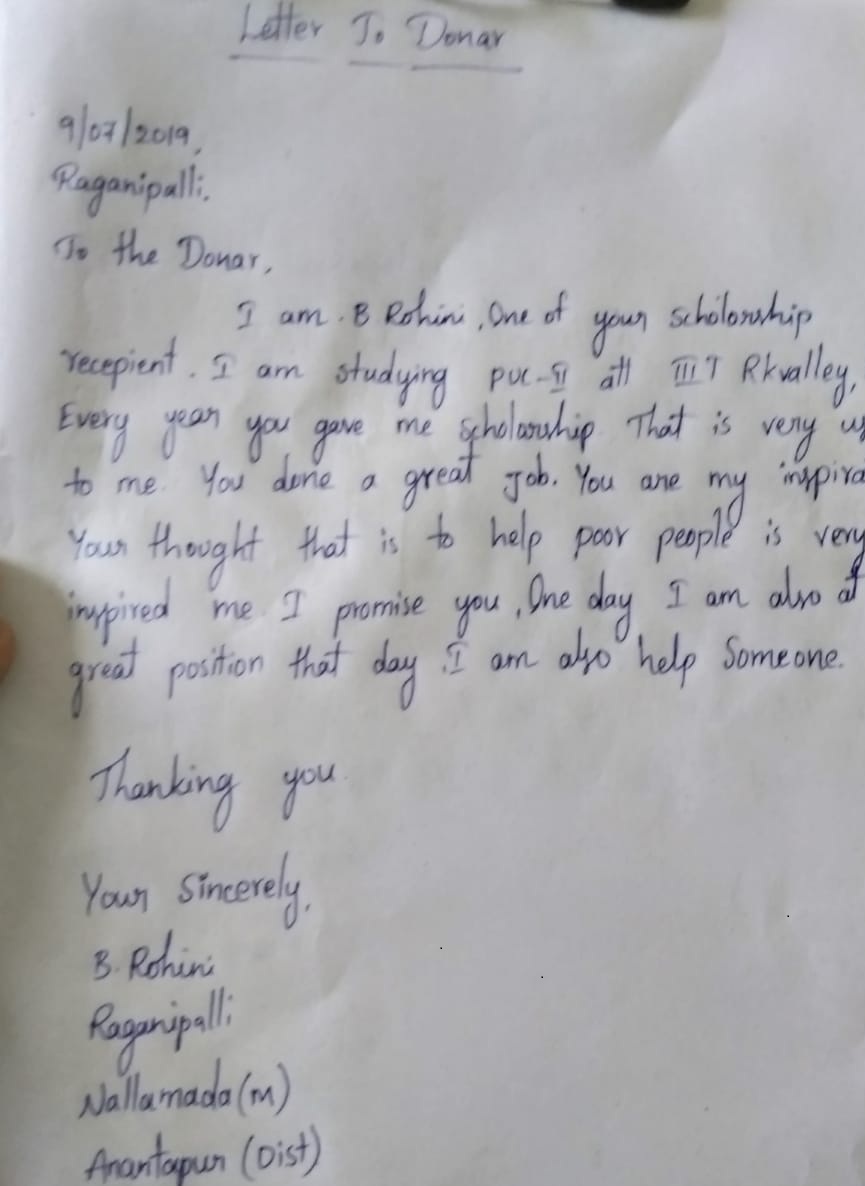 Letter To Donar
9/07/2019,
Raganipalli.
To the Donar,
I am . B Rohini , One of your scholorship
recepient . I am studying PUC-II att IIIT Rkvalley,
Every year you gave me scholarship. That is very
to me. You done a great Job. You are my
Your thought that is to help poor people is very
inspired me. I promise you, One day I am also at
great position that day .I am also help Someone.
Thanking you.
Your Sincerely,
B. Rohini
Raganipalli
Nallamada(M)
Anantapur (Dist)